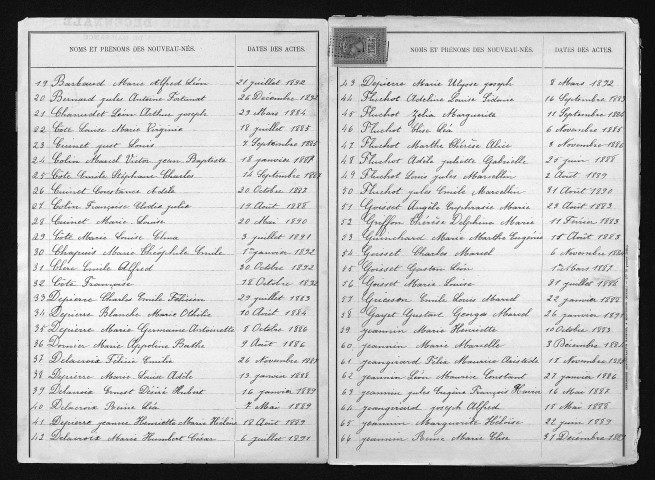 NOMS ET PRÉNOMS DES NOUVEAU-NÉS. DATES DES ACTES.
19 Barbaud Marie Alfred Léon 21 juillet 1892
20 Bernard jules Antoine Fortunat 26 Décembre 1892
21 Charmedet Léon Arthur joseph 29 Mars 1884
22 Côte Louise Marie Virginie 18 juillet 1885
23 Cuenet just Louis 7 Septembre 1885
24 Colin Marcel Victor jean Baptiste 18 janvier 1887
25 Côte Emile Stéphane Charles 14 Septembre 1887
26 Cuinet Constance Adèle 20 Octobre 1887
27 Colin Françoise julia 19 Août 1888
28 Cuinet Marie Louise 20 Mai 1890
29 Côte Marie Louise 3 juillet 1891
30 Chapuis Marie Théophile Emile 1er janvier 1892
31 Emile Alfred 30 Octobre 1892
32 Côte Françoise 18 Octobre 1892
33 Depierre Charles Emile 29 juillet 1883
34 Depierre Blanche Marie Othilie 10 Août 1884
35 Depierre Marie Germaine Antoinette 8 Octobre 1886
36 Dornier Marie Appoline Berthe 9 Août 1886
37 Delacroix Emilie 26 Novembre 1887
38 Depierre Marie Louise Adèle 13 janvier 1888
39 Delacroix Ernest Désiré Hubert 16 janvier 1889
40 Delacroix Reine Léa 7 Mai 1889
41 Depierre jeanne Henriette Marie Hélène 18 Août 1889
42 Delacroix Marie Humbert César 6 juillet 1891
NOMS ET PRÉNOMS DES NOUVEAU-NÉS. DATES DES ACTES.
43 Depierre Marie Ulysse joseph 8 Mars 1892
44 Fluchot Adeline Louise Sidonie 16 Septembre 1883
45 Fluchot Zélia Marguerite 11 Septembre 1884
46 Fluchot Elise Léa 6 Novembre 1885
47 Fluchot Marthe Thérèse Alice 3 Novembre 1886
48 Fluchot Adèle juliette Gabrielle 25 juin 1888
49 Fluchot Louis jules Marcellin 2 Août 1889
50 Fluchot jules Emile Marcellin 31 Août 1890
51 Gosset Angèle Euphrasie Marie 23 Août 1883
52 Griffon Thérèse Delphine Marie 11 Février 1883
53 Guinchard Marie Marthe Eugénie 15 Août 1883
54 Gosset Charles Marcel 6 Novembre
55 Goisset Gaston Léon 1er Mars 1887
56 Gosset Marie Louise 31 juillet 1888
57 Emile Louis Marcel 22 janvier 1888
58 Gayet Gustave Georges Marcel 26 janvier
59 jeannin Marie Henriette 10 Octobre 1883
60 jeannin Marie Marcelle 3 Décembre
61 jeangirard Félix Maurice Aristide 18 Novembre
62 jeannin Léon Maurice Constant 27 janvier 1886
63 jeannin jules Eugène François Xavier 16 Mai 1887
64 jeangirard joseph Alfred 18 Mai 1888
65 jeannin Marguerite Héloïse 22 juin 1889
66 jeannin Reine Marie Elise 31 Décembre 1889